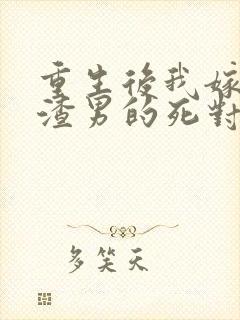 重生後我嫁
渣男的死對
多笑天